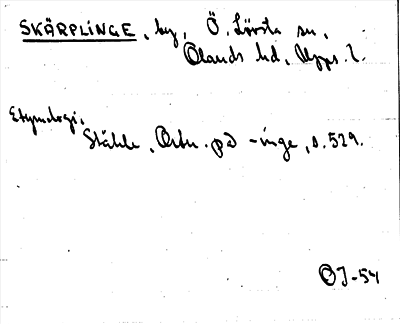 SKÄRPLINGE, by, Ö. Lövsta sn,
Ölands hd, Upps. l.
Etymologi.
Ståhle, Ortn. på -inge, s. 529.
OJ-54